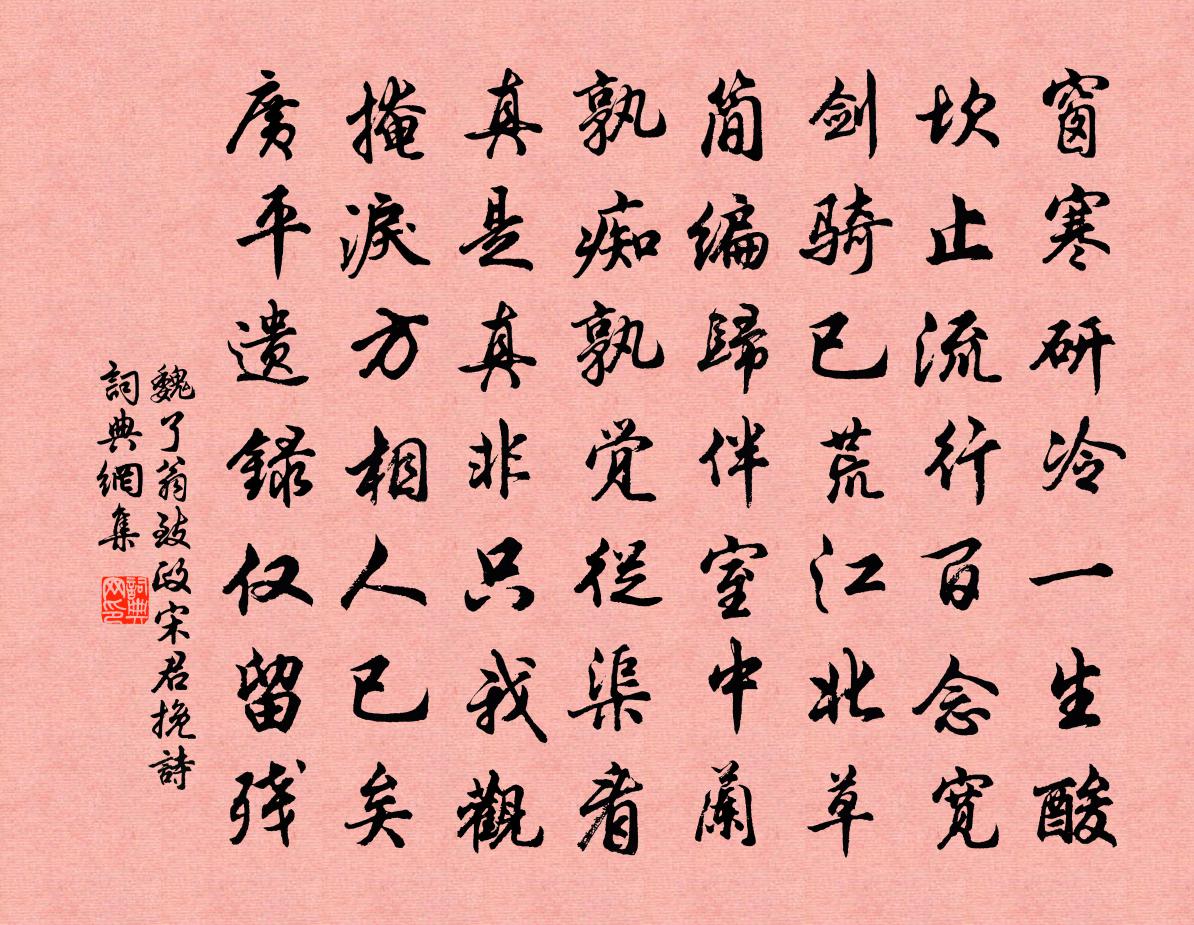 窗寒研冷一生酸
坎止流行百念宽
剑骑已荒江北草
简编歸伴室中蘭
孰痴孰觉從渠看
真是真非只我觀
掩淚方相人已矣
廣平遗録仅留残
魏了翁致政宋君挽詩
詞典網集
詞典网印